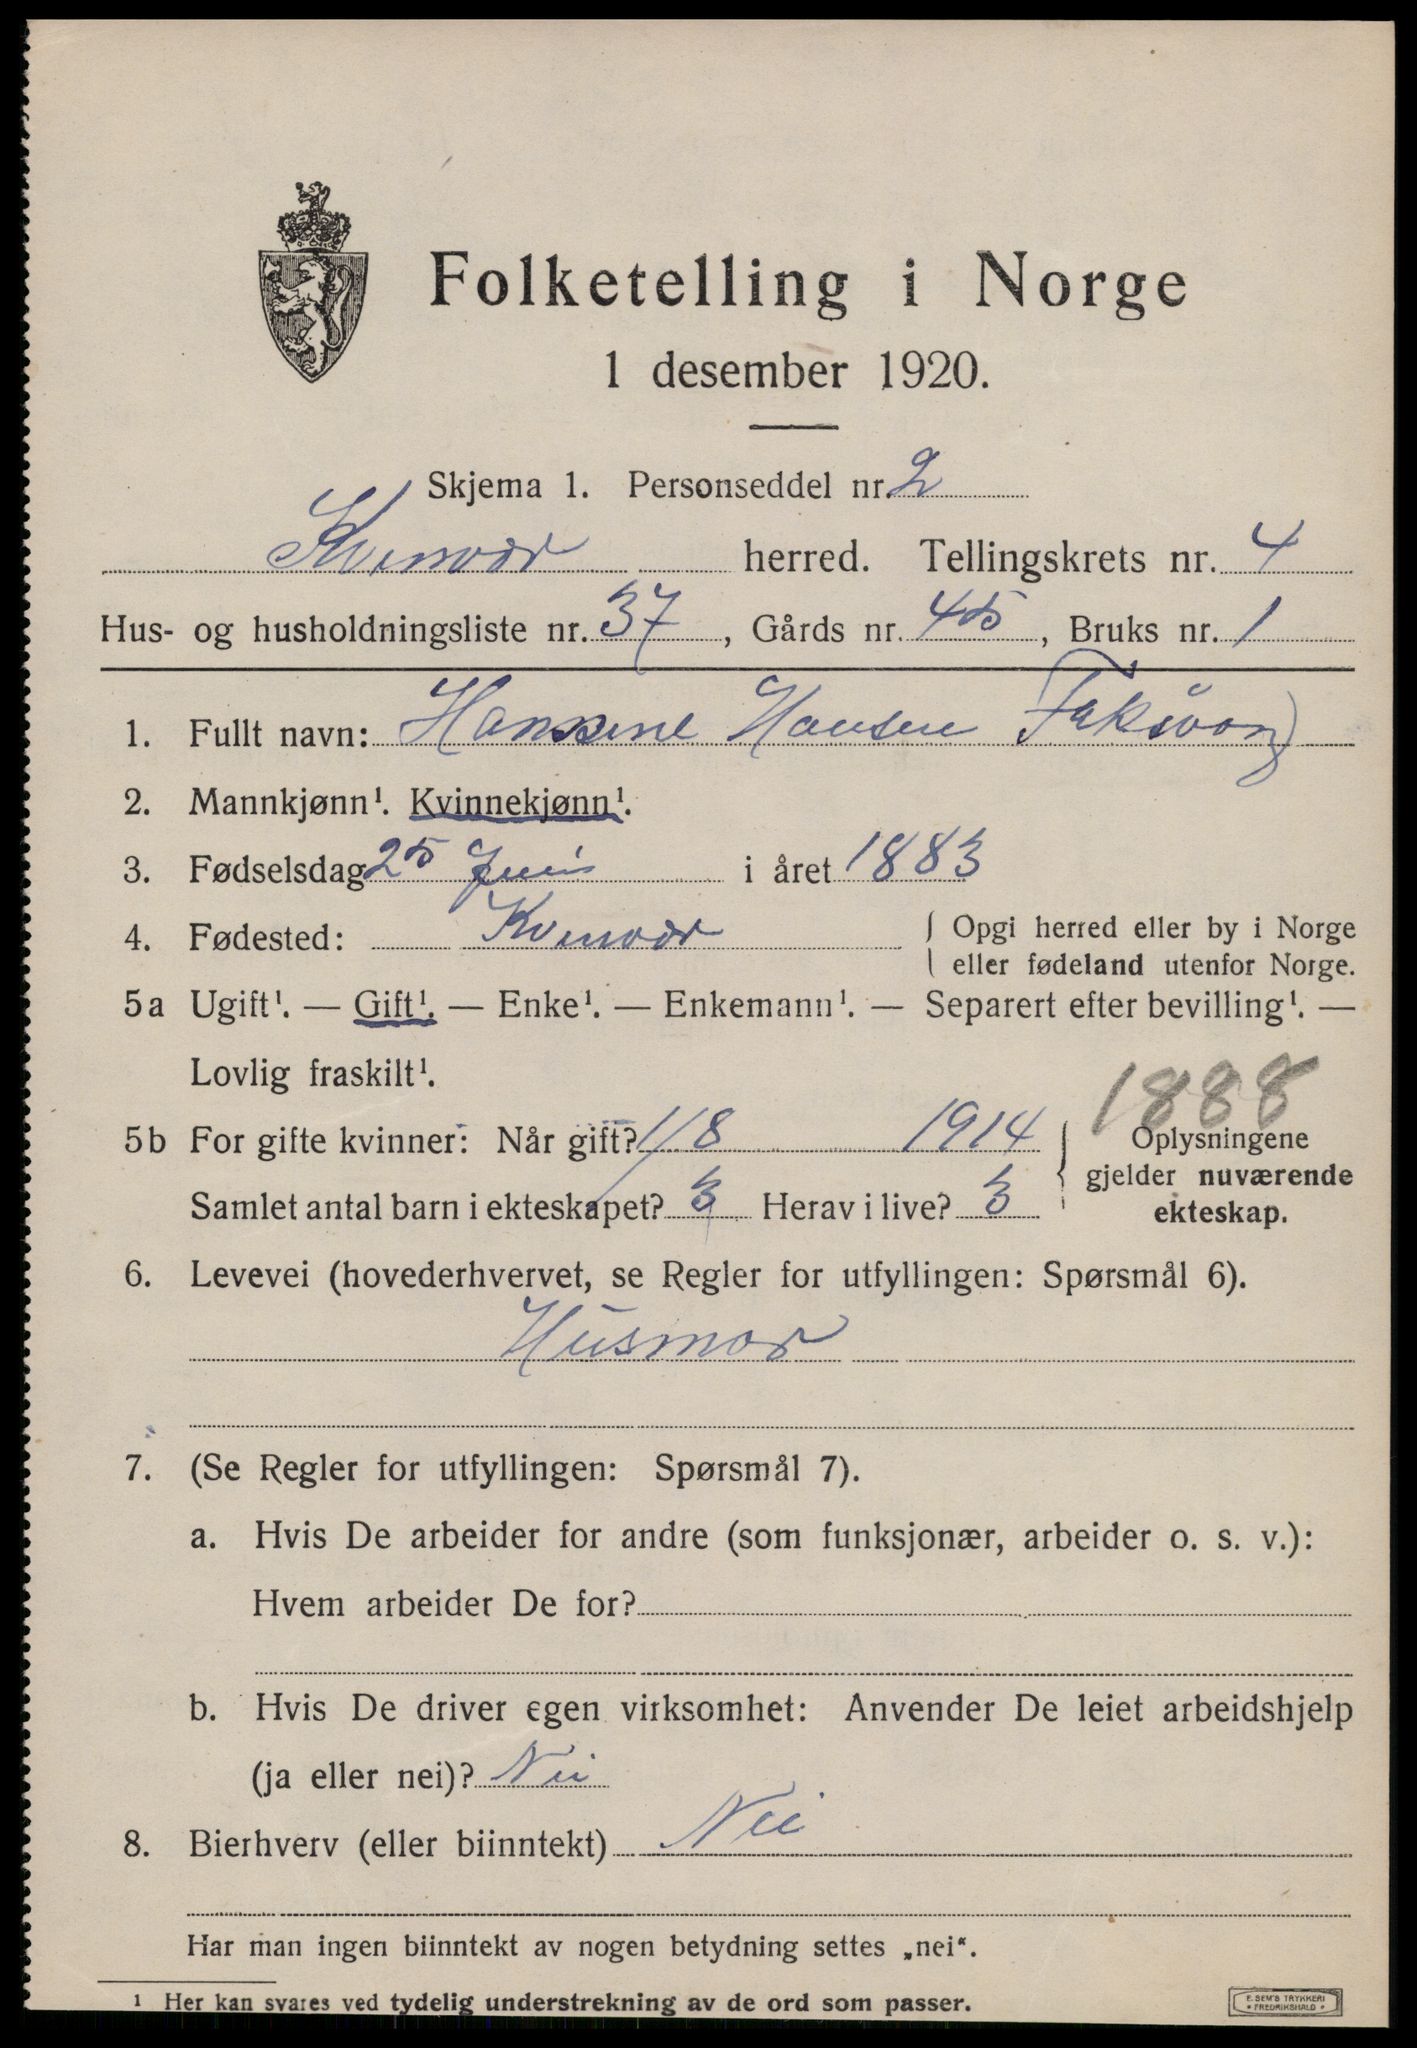 Folketelling i Norge
1 desember 1920.
Skjema 1. Personseddel nr. 2
Kvenvær herred. Tellingskrets nr. 4
Hus- og husholdningsliste nr. 37, Gårds nr. 45, Bruks nr. 1
1. Fullt navn: Hansine Hansen Taksvåg
2. Mannkjønn¹. Kvinnekjønn¹.
3. Fødselsdag 25 Juni i året 1883
4. Fødested: Kvenvær { Opgi herred eller by i Norge
eller fødeland utenfor Norge.
5a Ugift¹. — Gift¹. — Enke¹. — Enkemann¹. — Separert efter bevilling¹. —
Lovlig fraskilt¹.
1888
5b For gifte kvinner: Når gift? 1/8 1914
Samlet antal barn i ekteskapet? 3 Herav i live? 3
{ Oplysningene
gjelder nuværende
ekteskap.
6. Levevei (hovederhvervet, se Regler for utfyllingen: Spørsmål 6).
Husmor
7. (Se Regler for utfyllingen: Spørsmål 7).
a. Hvis De arbeider for andre (som funksjonær, arbeider o. s. v.):
Hvem arbeider De for?
b. Hvis De driver egen virksomhet: Anvender De leiet arbeidshjelp
(ja eller nei)? Nei
8. Bierhverv (eller biinntekt) Nei
Har man ingen biinntekt av nogen betydning settes „nei“.
¹ Her kan svares ved tydelig understrekning av de ord som passer.
E. SEM'S TRYKKERI
• FREDRIKSHALD •